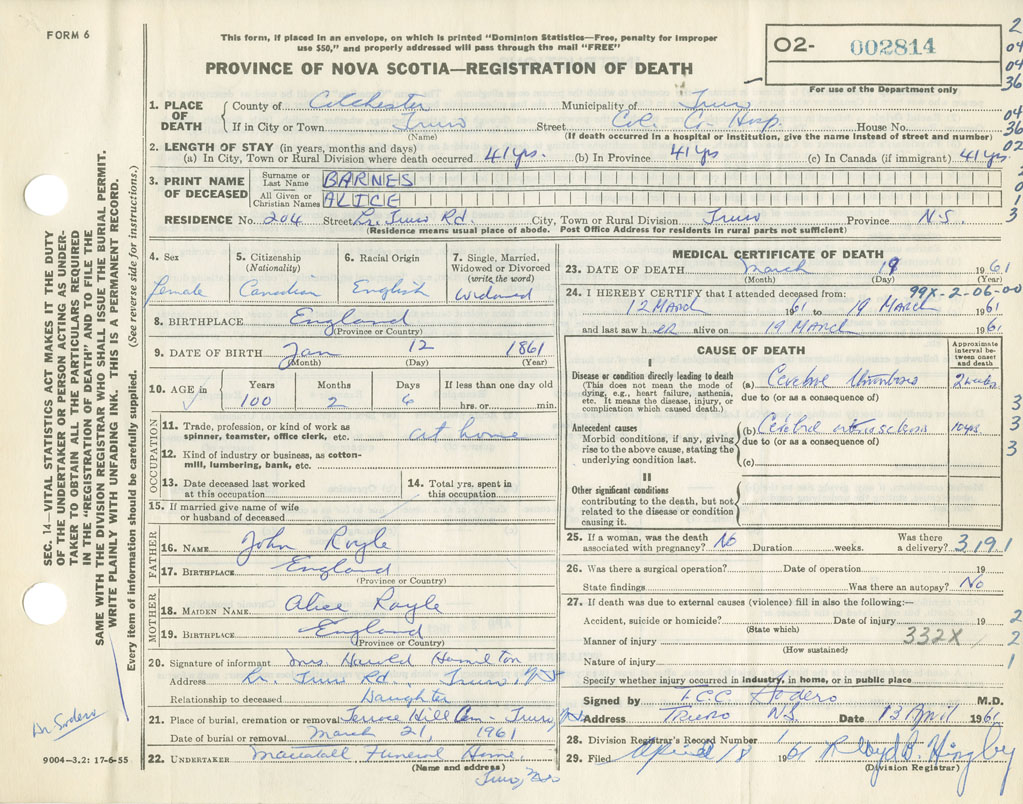 FORM 6
This form, if placed in an envelope, on which is printed "Dominion Statistics—Free, penalty for improper
use $50," and properly addressed will pass through the mail "FREE"
PROVINCE OF NOVA SCOTIA—REGISTRATION OF DEATH
O2- 002814
For use of the Department only
2
04
04
36
04
36
02
2
0
1
3
1. PLACE OF DEATH { County of Colchester Municipality of Truro
If in City or Town Truro Street Col. Co. Hosp. House No.
(Name) (If death occurred in a hospital or institution, give the name instead of street and number)
2. LENGTH OF STAY (in years, months and days)
(a) In City, Town or Rural Division where death occurred 41 yrs. (b) In Province 41 yrs (c) In Canada (if immigrant) 41 yrs.
3. PRINT NAME OF DECEASED Surname or Last Name BARNES
All Given or Christian Names ALICE
RESIDENCE No. 204 Street Lr. Truro Rd. City, Town or Rural Division Truro Province N.S.
(Residence means usual place of abode. Post Office Address for residents in rural parts not sufficient)
4. Sex
Female
5. Citizenship
(Nationality)
Canadian
6. Racial Origin
English
7. Single, Married,
Widowed or Divorced
(write the word)
Widowed
8. BIRTHPLACE England
(Province or Country)
9. DATE OF BIRTH Jan 12 1861
(Month) (Day) (Year)
10. AGE in Years Months Days If less than one day old
100 2 6 hrs. or min.
OCCUPATION
11. Trade, profession, or kind of work as
spinner, teamster, office clerk, etc. at home
12. Kind of industry or business, as cotton-
mill, lumbering, bank, etc.
13. Date deceased last worked
at this occupation
14. Total yrs. spent in
this occupation
15. If married give name of wife
or husband of deceased
FATHER
16. NAME John Royle
17. BIRTHPLACE England
(Province or Country)
MOTHER
18. MAIDEN NAME Alice Royle
19. BIRTHPLACE England
(Province or Country)
20. Signature of informant Mrs Harold Hamilton
Address Lr. Truro Rd., Truro, NS
Relationship to deceased Daughter
21. Place of burial, cremation or removal Terrace Hill Cem - Truro, NS
Date of burial or removal March 21, 1961
22. UNDERTAKER Mattatall Funeral Home,
(Name and address)
Truro, NS
MEDICAL CERTIFICATE OF DEATH
23. DATE OF DEATH March 19 1961
(Month) (Day) (Year)
99X-2-06-00
24. I HEREBY CERTIFY that I attended deceased from:
12 March 1961 to 19 March 1961
and last saw her alive on 19 March 1961
CAUSE OF DEATH
Approximate
interval be-
tween onset
and death
I
Disease or condition directly leading to death
(This does not mean the mode of
dying, e.g., heart failure, asthenia,
etc. It means the disease, injury, or
complication which caused death.)
(a) Cerebral thrombosis 2 weeks
due to (or as a consequence of)
3
Antecedent causes
Morbid conditions, if any, giving
rise to the above cause, stating the
underlying condition last.
(b) Cerebral arteriosclerosis 10 yrs.
due to (or as a consequence of)
(c)
3
3
II
Other significant conditions
contributing to the death, but not
related to the disease or condition
causing it.
25. If a woman, was the death
associated with pregnancy? No Duration weeks. Was there
a delivery? 3.19.1
26. Was there a surgical operation? Date of operation 19
State findings Was there an autopsy? No
27. If death was due to external causes (violence) fill in also the following:—
Accident, suicide or homicide? Date of injury 19 2
(State which)
Manner of injury 332X 2
(How sustained)
Nature of injury 1
Specify whether injury occurred in industry, in home, or in public place
Signed by M.D.
Address Truro N.S. Date 13 April 1961
28. Division Registrar's Record Number
29. Filed April 18 1961
(Division Registrar)
SEC. 14—VITAL STATISTICS ACT MAKES IT THE DUTY
OF THE UNDERTAKER OR PERSON ACTING AS UNDER-
TAKER TO OBTAIN ALL THE PARTICULARS REQUIRED
IN THE "REGISTRATION OF DEATH" AND TO FILE THE
SAME WITH THE DIVISION REGISTRAR WHO SHALL ISSUE THE BURIAL PERMIT.
WRITE PLAINLY WITH UNFADING INK. THIS IS A PERMANENT RECORD.
Every item of information should be carefully supplied. (See reverse side for instructions.)
Dr Sodero
9004—3.2: 17-6-55